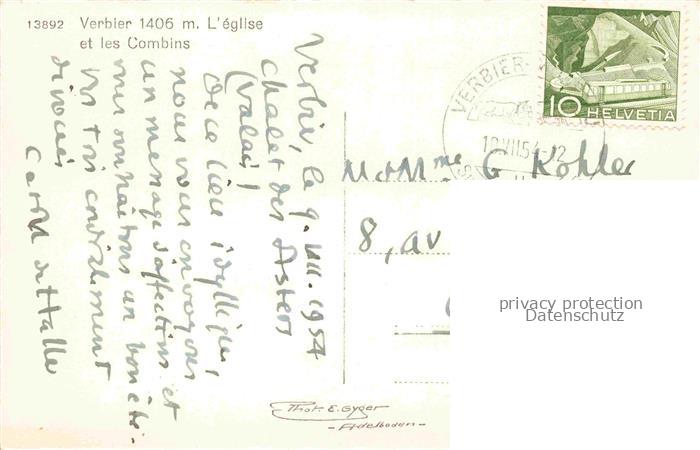 13892 Verbier 1406 m. L'église
et les Combins
Verbier, le 9. VII. 1954
Chalet des Asters
(Valais)
De ce lieu idyllique,
nous vous envoyons
un message d'affections et
vous souhaitons un bon été.
Vos très cordialement
dévoués
de Haller
VERBIER
10.VII.54-12
10 HELVETIA
M et Mme G Kohler
8, av
privacy protection
Datenschutz
Phot. E. Gyger
- Adelboden -